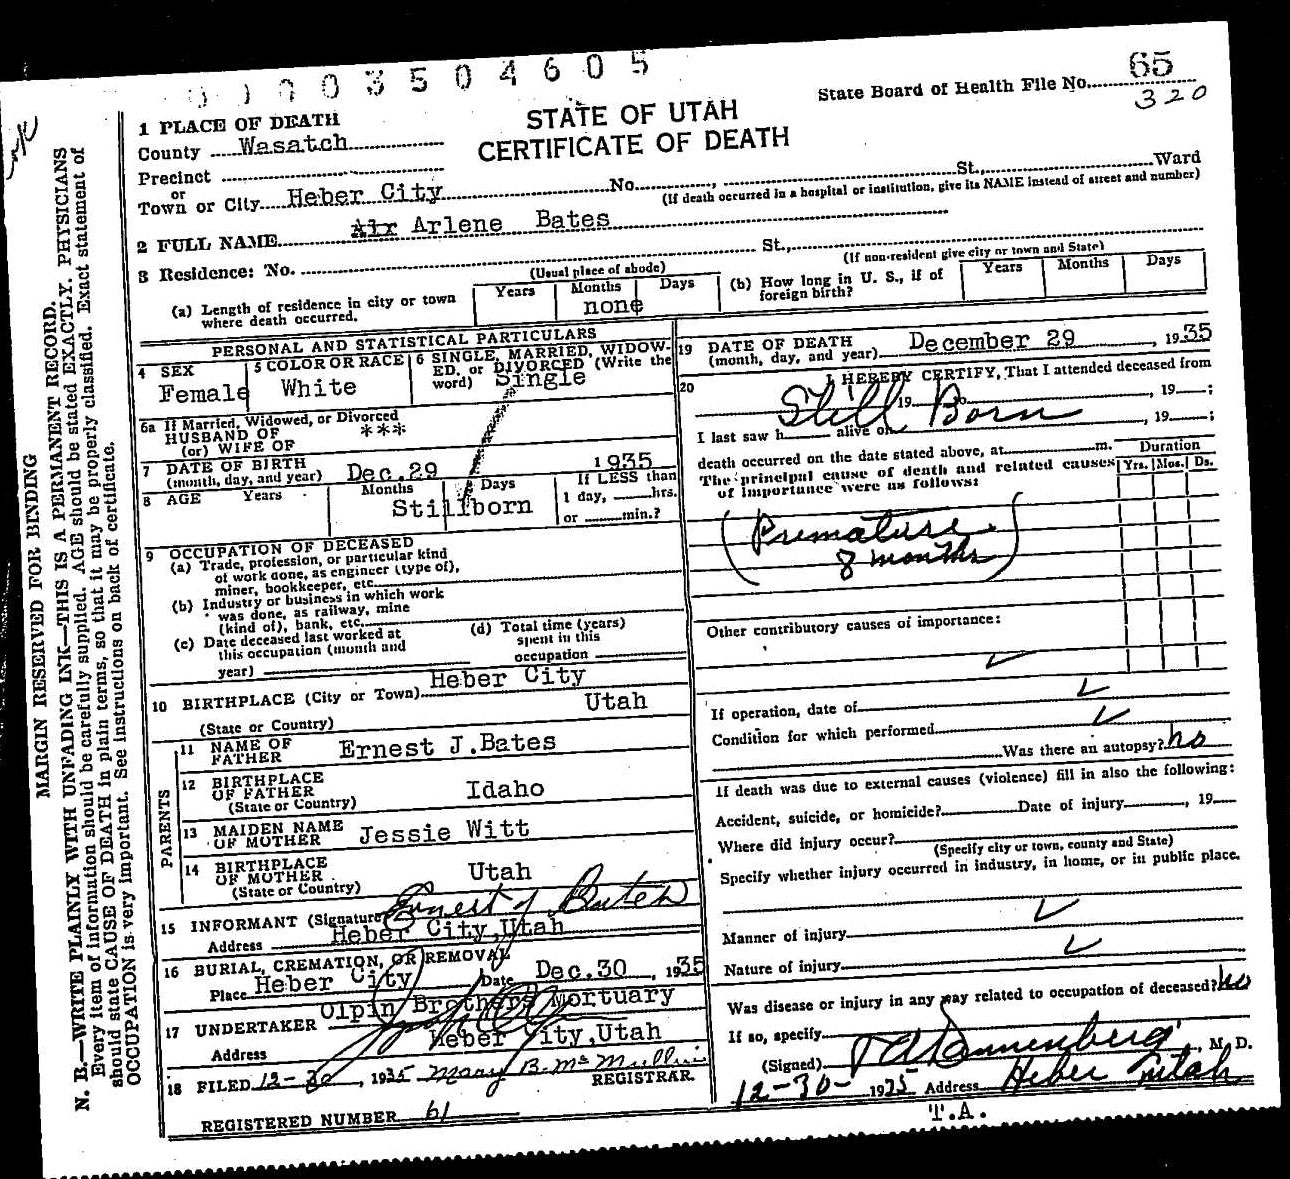 0003504605
State Board of Health File No. 65
320
STATE OF UTAH
CERTIFICATE OF DEATH
1 PLACE OF DEATH
County Wasatch
Precinct
or
Town or City Heber City No. , St., Ward
(If death occurred in a hospital or institution, give its NAME instead of street and number)
2 FULL NAME Air Arlene Bates
3 Residence: No. St.,
(Usual place of abode) (If non-resident give city or town and State)
(a) Length of residence in city or town where death occurred. Years Months Days
none
(b) How long in U. S., if of foreign birth? Years Months Days
PERSONAL AND STATISTICAL PARTICULARS
4 SEX
Female
5 COLOR OR RACE
White
6 SINGLE, MARRIED, WIDOW-
ED, or DIVORCED (Write the
word) Single
6a If Married, Widowed, or Divorced
HUSBAND OF
(or) WIFE OF ***
7 DATE OF BIRTH
(month, day, and year) Dec.29 1935
8 AGE Years Months Days If LESS than
1 day, hrs.
or min.?
Stillborn
9 OCCUPATION OF DECEASED
(a) Trade, profession, or particular kind
of work done, as engineer (type of),
miner, bookkeeper, etc.
(b) Industry or business in which work
was done, as railway, mine
(kind of), bank, etc.
(c) Date deceased last worked at
this occupation (month and
year)
(d) Total time (years)
spent in this
occupation
10 BIRTHPLACE (City or Town) Heber City
(State or Country) Utah
PARENTS
11 NAME OF
FATHER Ernest J.Bates
12 BIRTHPLACE
OF FATHER
(State or Country) Idaho
13 MAIDEN NAME
OF MOTHER Jessie Witt
14 BIRTHPLACE
OF MOTHER
(State or Country) Utah
15 INFORMANT (Signature) Ernest J Bates
Address Heber City,Utah
16 BURIAL, CREMATION, OR REMOVAL
Place Heber City Date Dec.30 , 1935
Olpin Brothers Mortuary
17 UNDERTAKER
Address Heber City,Utah
18 FILED 12-30 , 1935 Mary B. McMullin
REGISTRAR.
REGISTERED NUMBER 61
19 DATE OF DEATH
(month, day, and year) December 29 , 1935
20 I HEREBY CERTIFY, That I attended deceased from
19 to , 19 ;
Still Born
I last saw h alive on , 19 ;
death occurred on the date stated above, at m.
The principal cause of death and related causes
of importance were as follows:
Duration
Yrs. Mos. Ds.
(Premature
8 months)
Other contributory causes of importance:
If operation, date of
Condition for which performed
Was there an autopsy? no
If death was due to external causes (violence) fill in also the following:
Accident, suicide, or homicide? Date of injury , 19
Where did injury occur?
(Specify city or town, county and State)
Specify whether injury occurred in industry, in home, or in public place.
Manner of injury
Nature of injury
Was disease or injury in any way related to occupation of deceased? no
If so, specify
(Signed) Dannenberg , M. D.
12-30- 1935 Address Heber Utah
T.A.
MARGIN RESERVED FOR BINDING
N. B.—WRITE PLAINLY WITH UNFADING INK—THIS IS A PERMANENT RECORD.
Every item of information should be carefully supplied. AGE should be stated EXACTLY. PHYSICIANS
should state CAUSE OF DEATH in plain terms, so that it may be properly classified. Exact statement of
OCCUPATION is very important. See instructions on back of certificate.